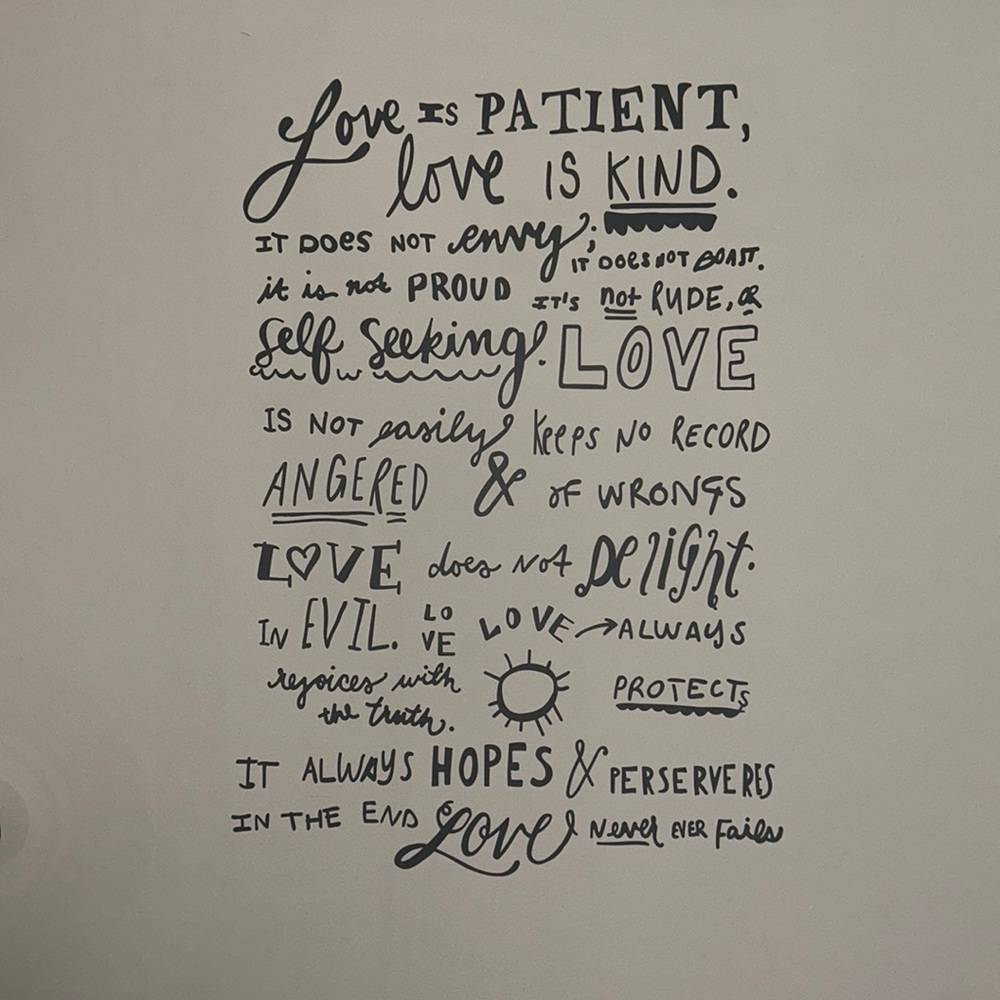 Love IS PATIENT,
love IS KIND.
IT DOES NOT envy; IT DOES NOT BOAST.
it is not PROUD IT'S not RUDE, OR
Self Seeking. LOVE
IS NOT easily keeps NO RECORD
ANGERED & OF WRONGS
LOVE does NOT Delight.
IN EVIL. LO VE LOVE → ALWAYS
rejoices with PROTECTS
the truth.
IT ALWAYS HOPES & PERSERVERES
IN THE END Love Never EVER Fails